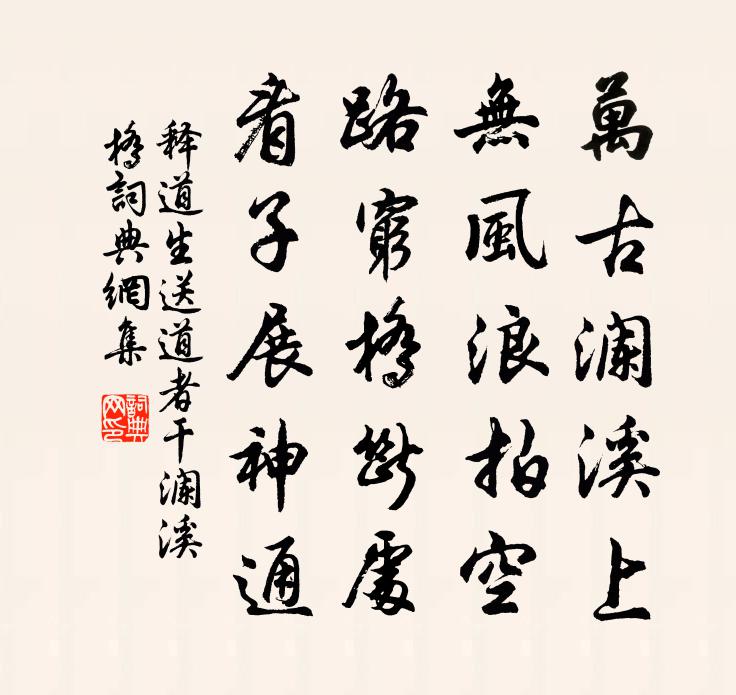 萬古瀾溪上
無風浪拍空
路窮橋斷處
看子展神通
释道生送道者干瀾溪
橋詞典網集
詞典
网印